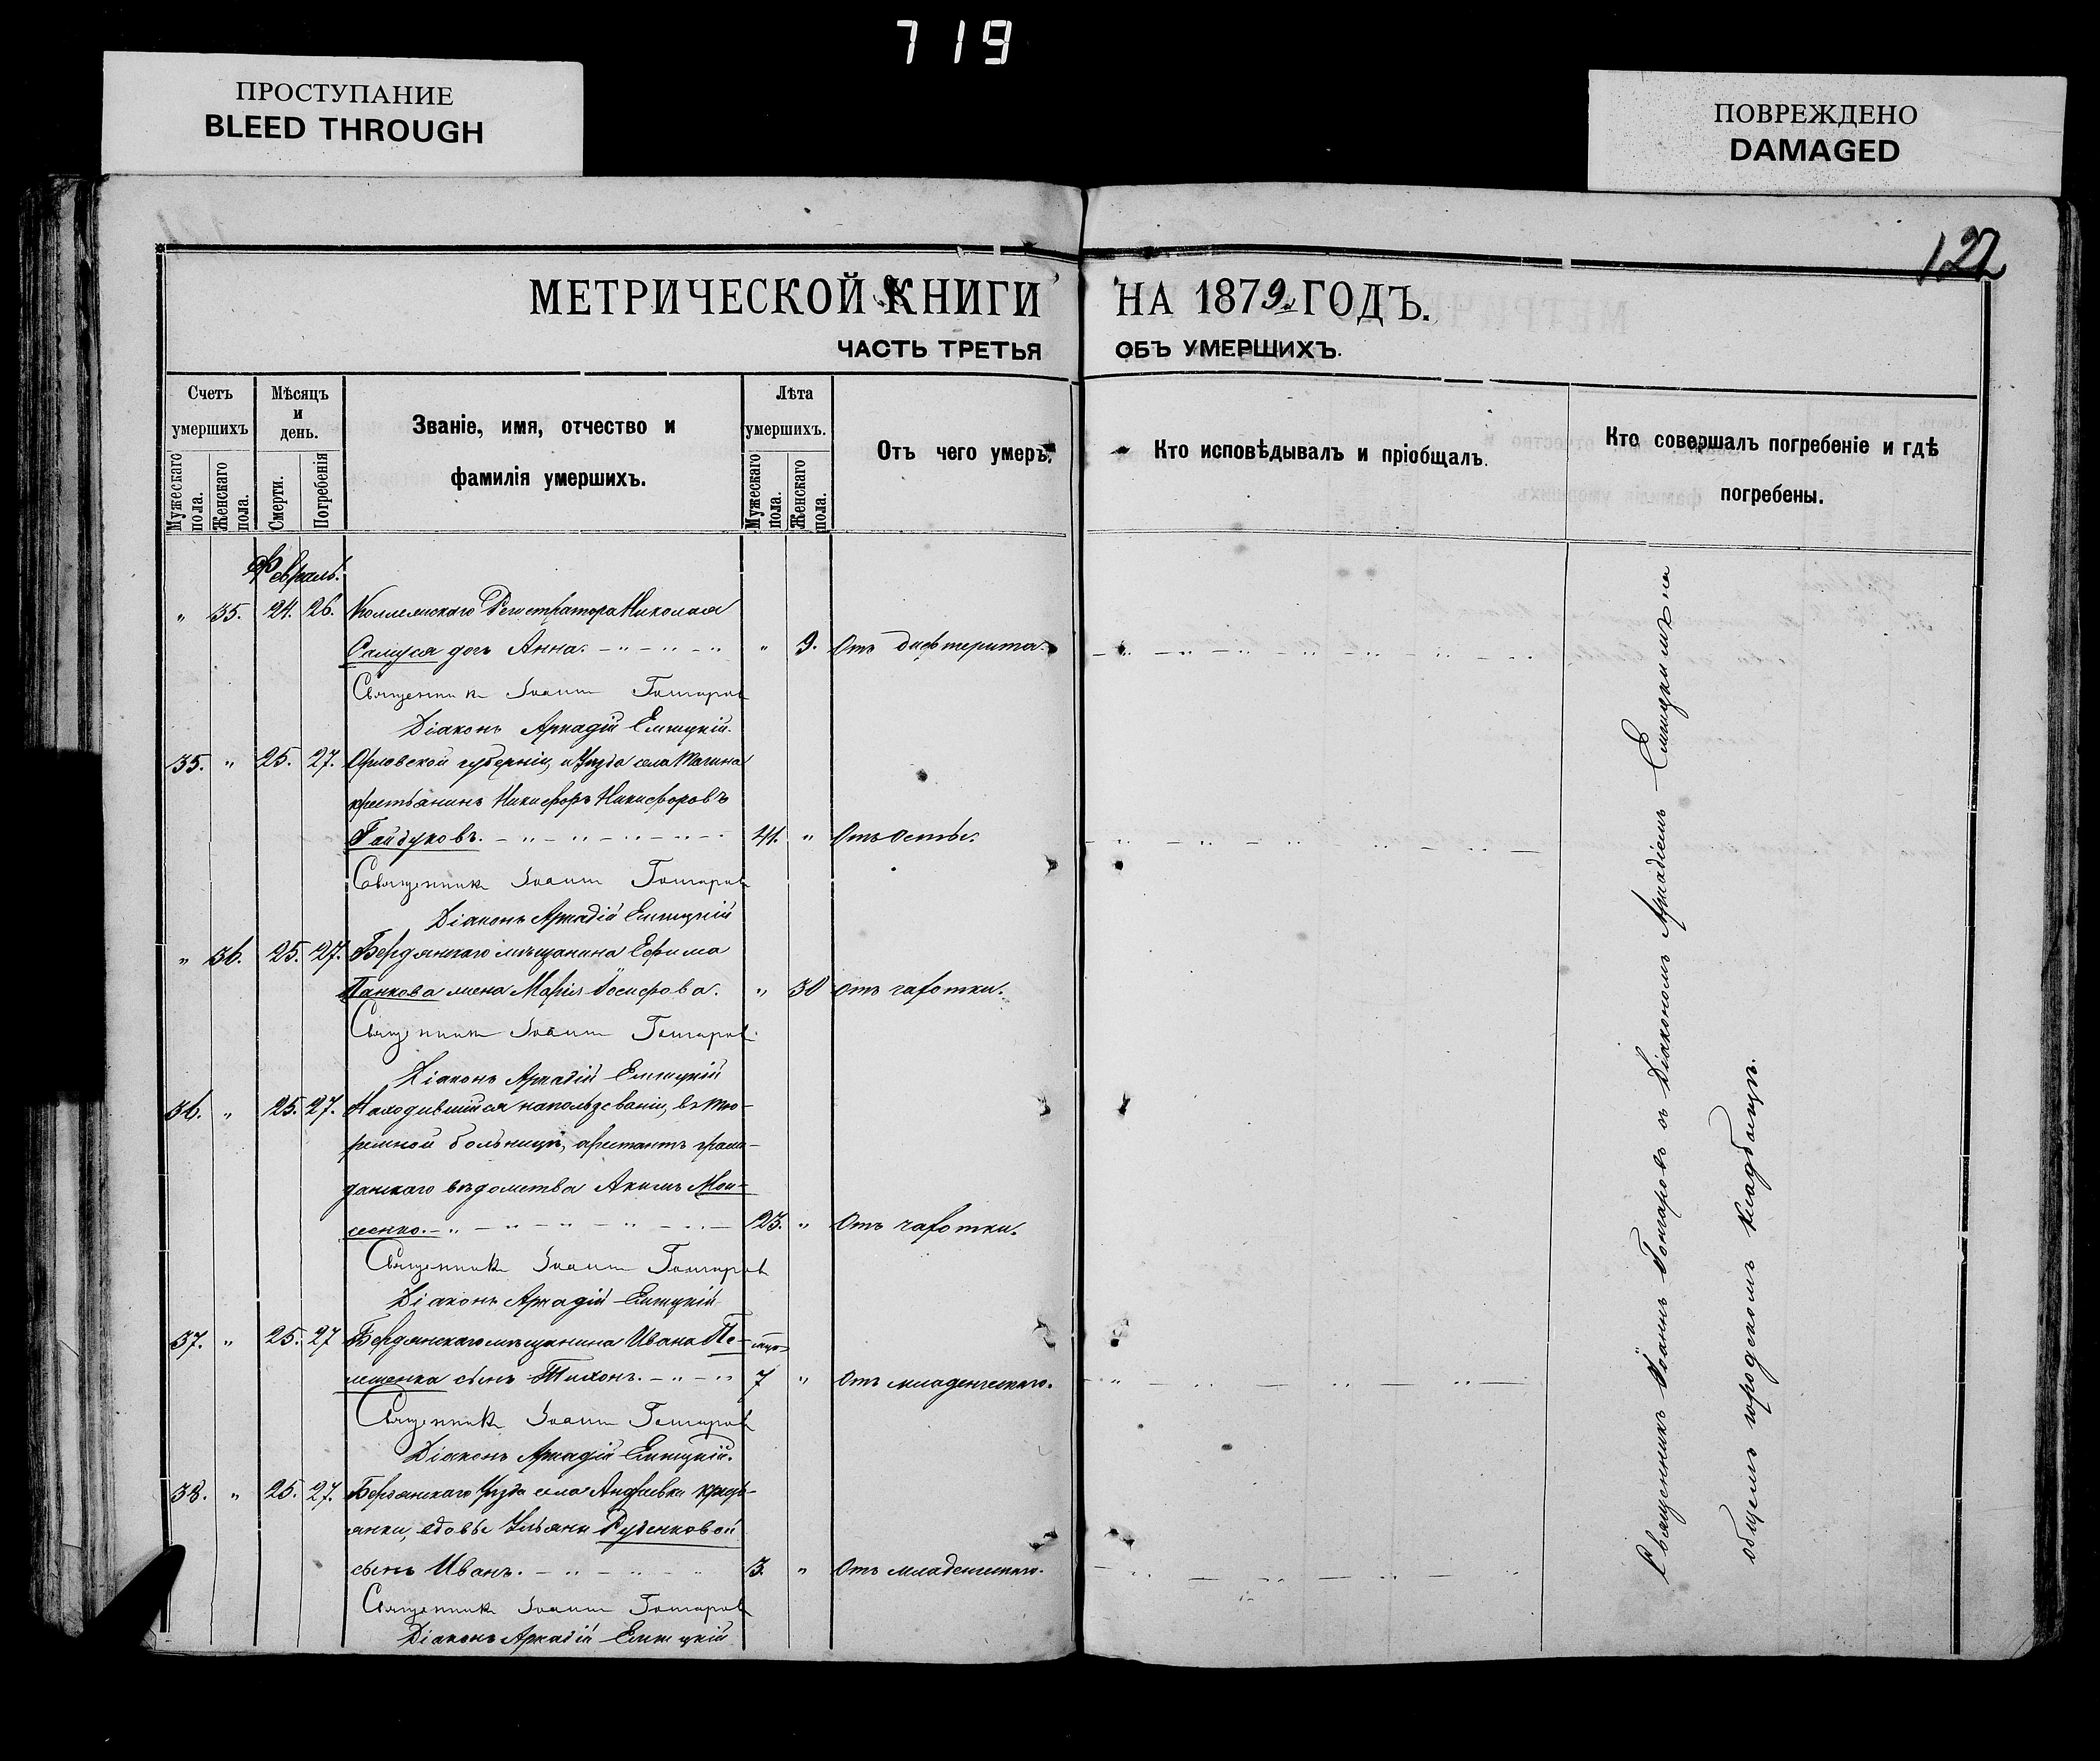 719
ПРОСТУПАНИЕ
BLEED THROUGH
ПОВРЕЖДЕНО
DAMAGED
122
МЕТРИЧЕСКОЙ КНИГИ НА 1879 ГОДЪ.
ЧАСТЬ ТРЕТЬЯ ОБЪ УМЕРШИХЪ.
Счетъ умершихъ
Мужескаго пола.
Женскаго пола.
Мѣсяцъ и день.
Смерти.
Погребенія
Званіе, имя, отчество и
фамилія умершихъ.
Лѣта умершихъ.
Мужескаго пола.
Женскаго пола.
Отъ чего умеръ.
Кто исповѣдывалъ и пріобщалъ.
Кто совершалъ погребеніе и гдѣ
погребены.
Февраль.
" 35. 24. 26. Коллежскаго Регистратора Николая
дочь Анна. " 9. Отъ дифтерита.
Священник Іоанн Гончаров
Діаконъ Аркадій
35. " 25. 27. Орловской губерніи, и уѣзда села
крестьянинъ Никифоръ Никифоровъ
Гайдуковъ. 41. " Отъ оспы.
Священник Іоанн Гончаров
Діаконъ Аркадій
" 36. 25. 27. Бердянскаго мѣщанина Ефима
Панкова жена Марія Іосифова. " 30 отъ чахотки.
Священник Іоанн Гончаров
Діаконъ Аркадій
36. " 25. 27. Находившійся на пользованіи, въ тю-
ремной больницѣ, арестантъ граж-
данскаго вѣдомства Акимъ Мои-
сеенко. 23. " Отъ чахотки.
Священник Іоанн Гончаров
Діаконъ Аркадій
37. " 25. 27 Бердянскаго мѣщанина Ивана
сынъ Тихонъ. 7 " Отъ младенческаго.
Священник Іоанн Гончаров
Діаконъ Аркадій
38. " 25. 27. Бердянскаго уѣзда села Андреевки крест-
янки, вдовы Ульяны Руденковой
сынъ Иванъ. 3. " Отъ младенческаго.
Священник Іоанн Гончаров
Діаконъ Аркадій
Священникъ Іоаннъ Гончаровъ съ Діакономъ Аркадіемъ на
общемъ городскомъ кладбищѣ.